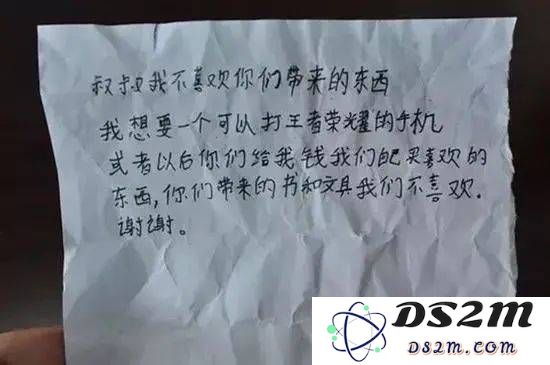 叔叔我不喜欢你们带来的东西
我想要一个可以打王者荣耀的手机
或者以后你们给我钱我们自己买喜欢的
东西,你们带来的书和文具我们不喜欢.
谢谢。
DS2m
DS2m.com